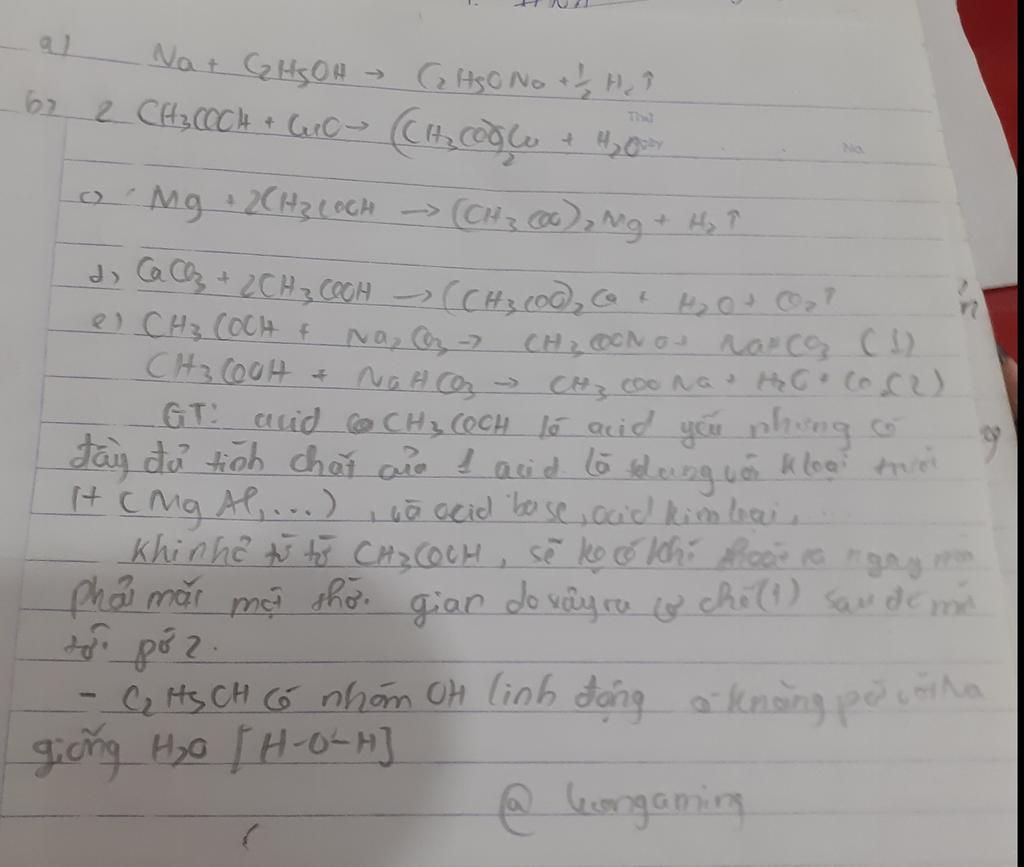 a) Na + C2H5OH → C2H5ONa + 1/2 H2↑
b) 2 CH3COOH + CuO → (CH3COO)2Cu + H2O
Na
c) Mg + 2CH3COOH → (CH3COO)2Mg + H2↑
d) CaCO3 + 2CH3COOH → (CH3COO)2Ca + H2O + CO2↑
e) CH3COOH + Na2CO3 → CH3COONa + NaHCO3 (1)
CH3COOH + NaHCO3 → CH3COONa + H2O + CO2 (2)
GT: acid CH3COOH là acid yếu nhưng có
đầy đủ tính chất của 1 acid là tdụng với kloại trước
H (Mg Al,...), và acid base, acid kim loại,
Khi nhỏ từ từ CH3COOH, sẽ ko có khí thoát ra ngay mà
phải mất một thời gian do xảy ra cơ chế (1) sau đó mới
tới pứ 2.
- C2H5OH có nhóm OH linh động pứ với Na
giống H2O [H-O-H]
@ kongaming